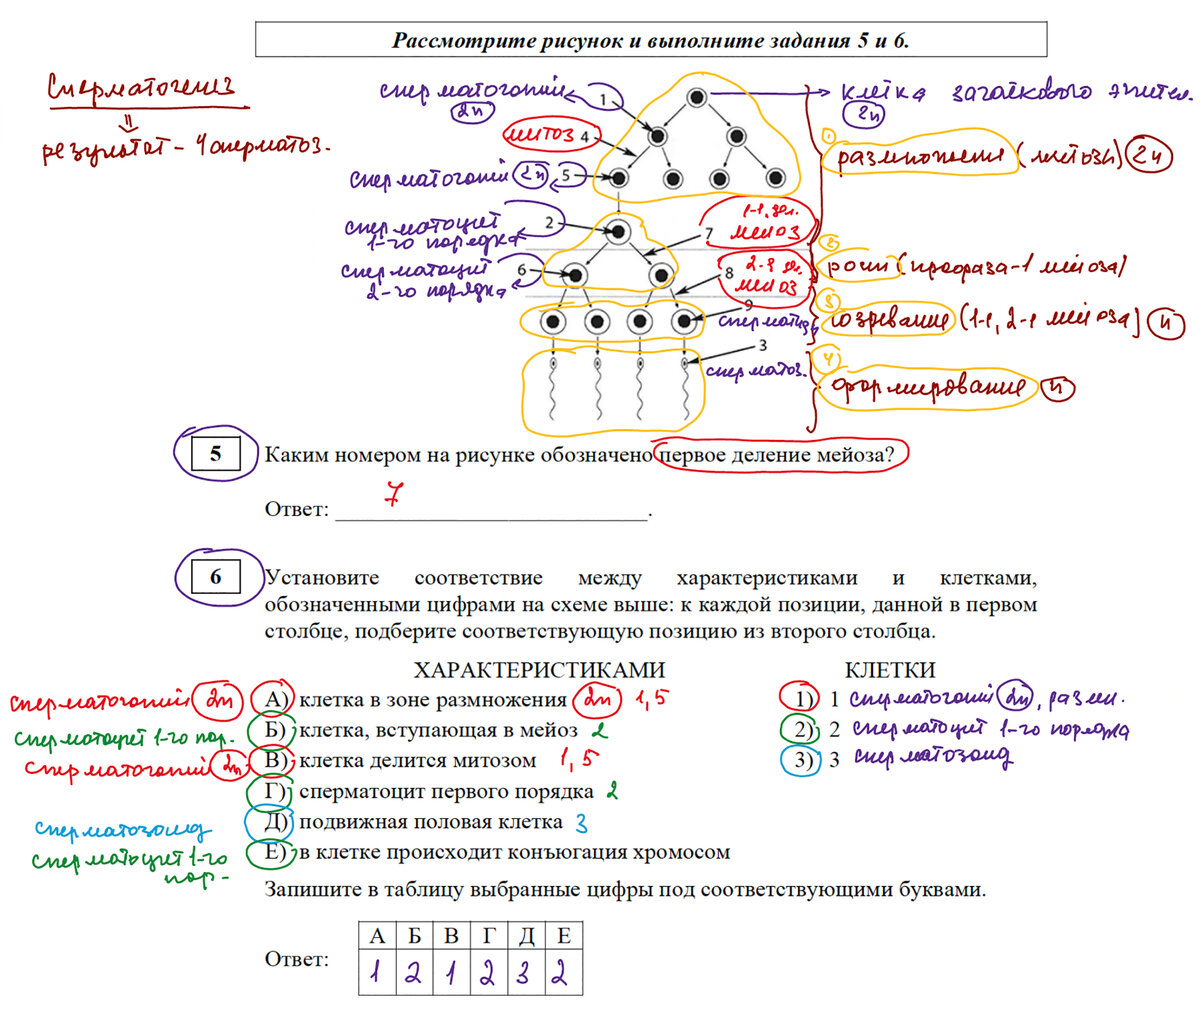 Рассмотрите рисунок и выполните задания 5 и 6.
Сперматогенез
результат - 4 сперматоз.
сперматогоний
2n
1
клетка зачаткового эпител.
2n
митоз
4
1
размножения (митозы) 2n
сперматогоний 2n
5
1-е дел.
мейоз
сперматоцит
1-го порядка
2
7
2
роста (профаза-1 мейоза)
2-е дел.
мейоз
сперматоцит
2-го порядка
6
8
9
сперматиды
3
созревание (1-е, 2-е мейоза) n
3
сперматоз.
4
формирование n
5
Каким номером на рисунке обозначено первое деление мейоза?
Ответ: 7.
6
Установите соответствие между характеристиками и клетками,
обозначенными цифрами на схеме выше: к каждой позиции, данной в первом
столбце, подберите соответствующую позицию из второго столбца.
ХАРАКТЕРИСТИКАМИ
КЛЕТКИ
сперматогоний 2n А) клетка в зоне размножения 2n 1,5
1) 1 сперматогоний 2n, разм.
сперматоцит 1-го пор. Б) клетка, вступающая в мейоз 2
2) 2 сперматоцит 1-го порядка
сперматогоний 2n В) клетка делится митозом 1,5
3) 3 сперматозоид
Г) сперматоцит первого порядка 2
сперматозоид Д) подвижная половая клетка 3
сперматоцит 1-го
пор-
Е) в клетке происходит конъюгация хромосом
Запишите в таблицу выбранные цифры под соответствующими буквами.
А Б В Г Д Е
Ответ: 1 2 1 2 3 2